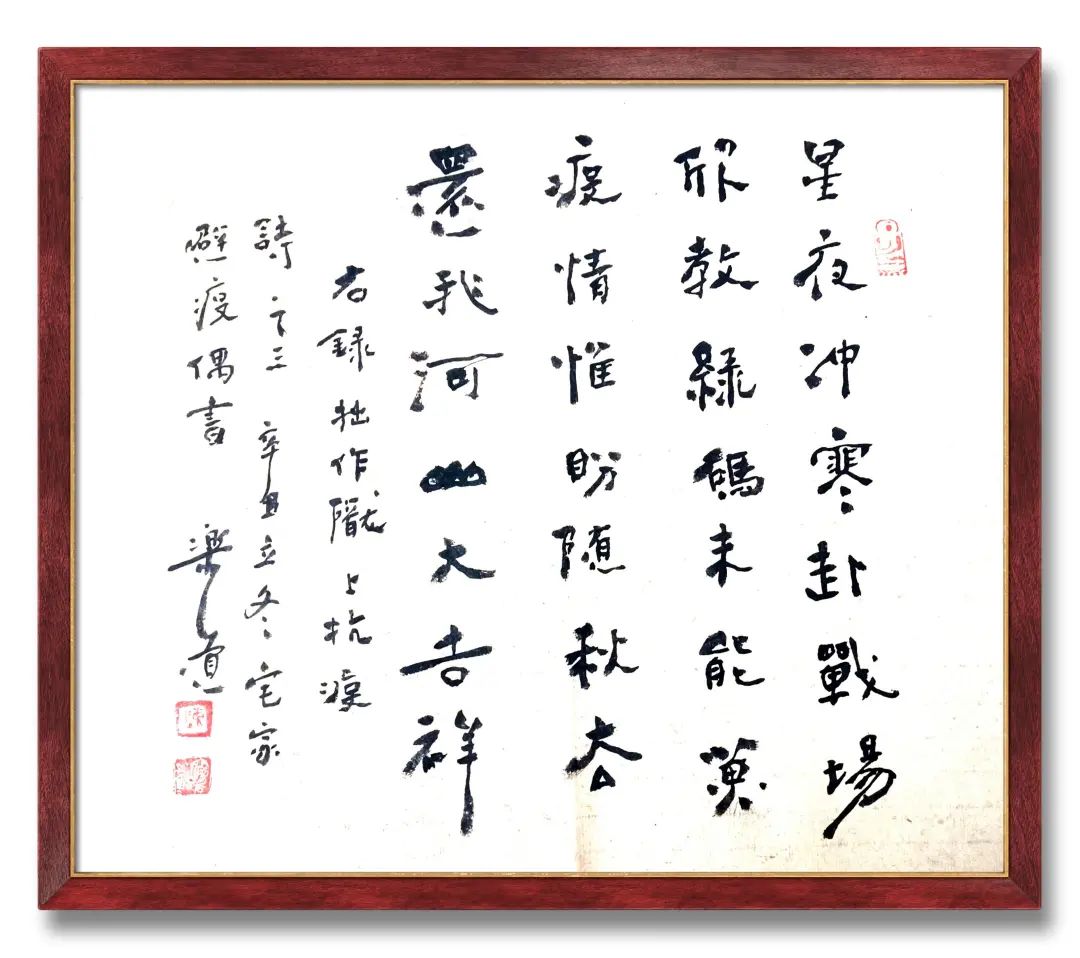 星夜冲寒赴戰場
欣教綠碼未能黄
疫情惟盼随秋去
還我河山大吉祥
右錄拙作隴上抗疫
詩之三 辛丑立冬宅家
避疫偶書 樂